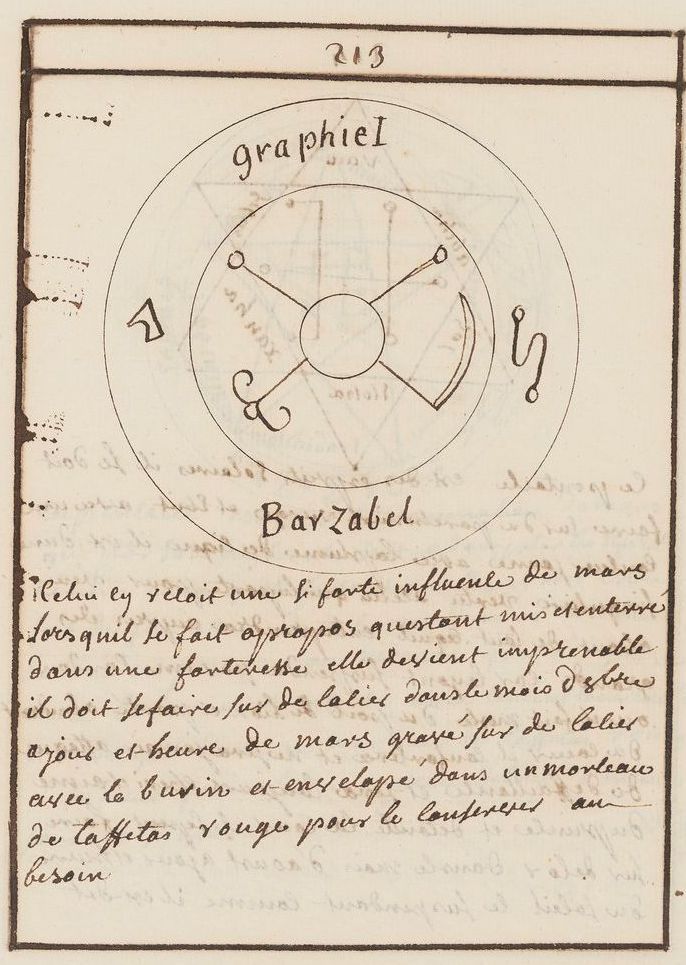 213
graphiel
Barzabel
Celui cy recoit une si forte influence de mars
lorsquil se fait apropos questant mis et enterré
dans une forteresse elle devient imprenable
il doit se faire sur de lacier dans le mois D 8bre
a jour et heure de mars gravé sur de lacier
avec le burin et envelopé dans un morceau
de taffetas rouge pour le conserver au
besoin